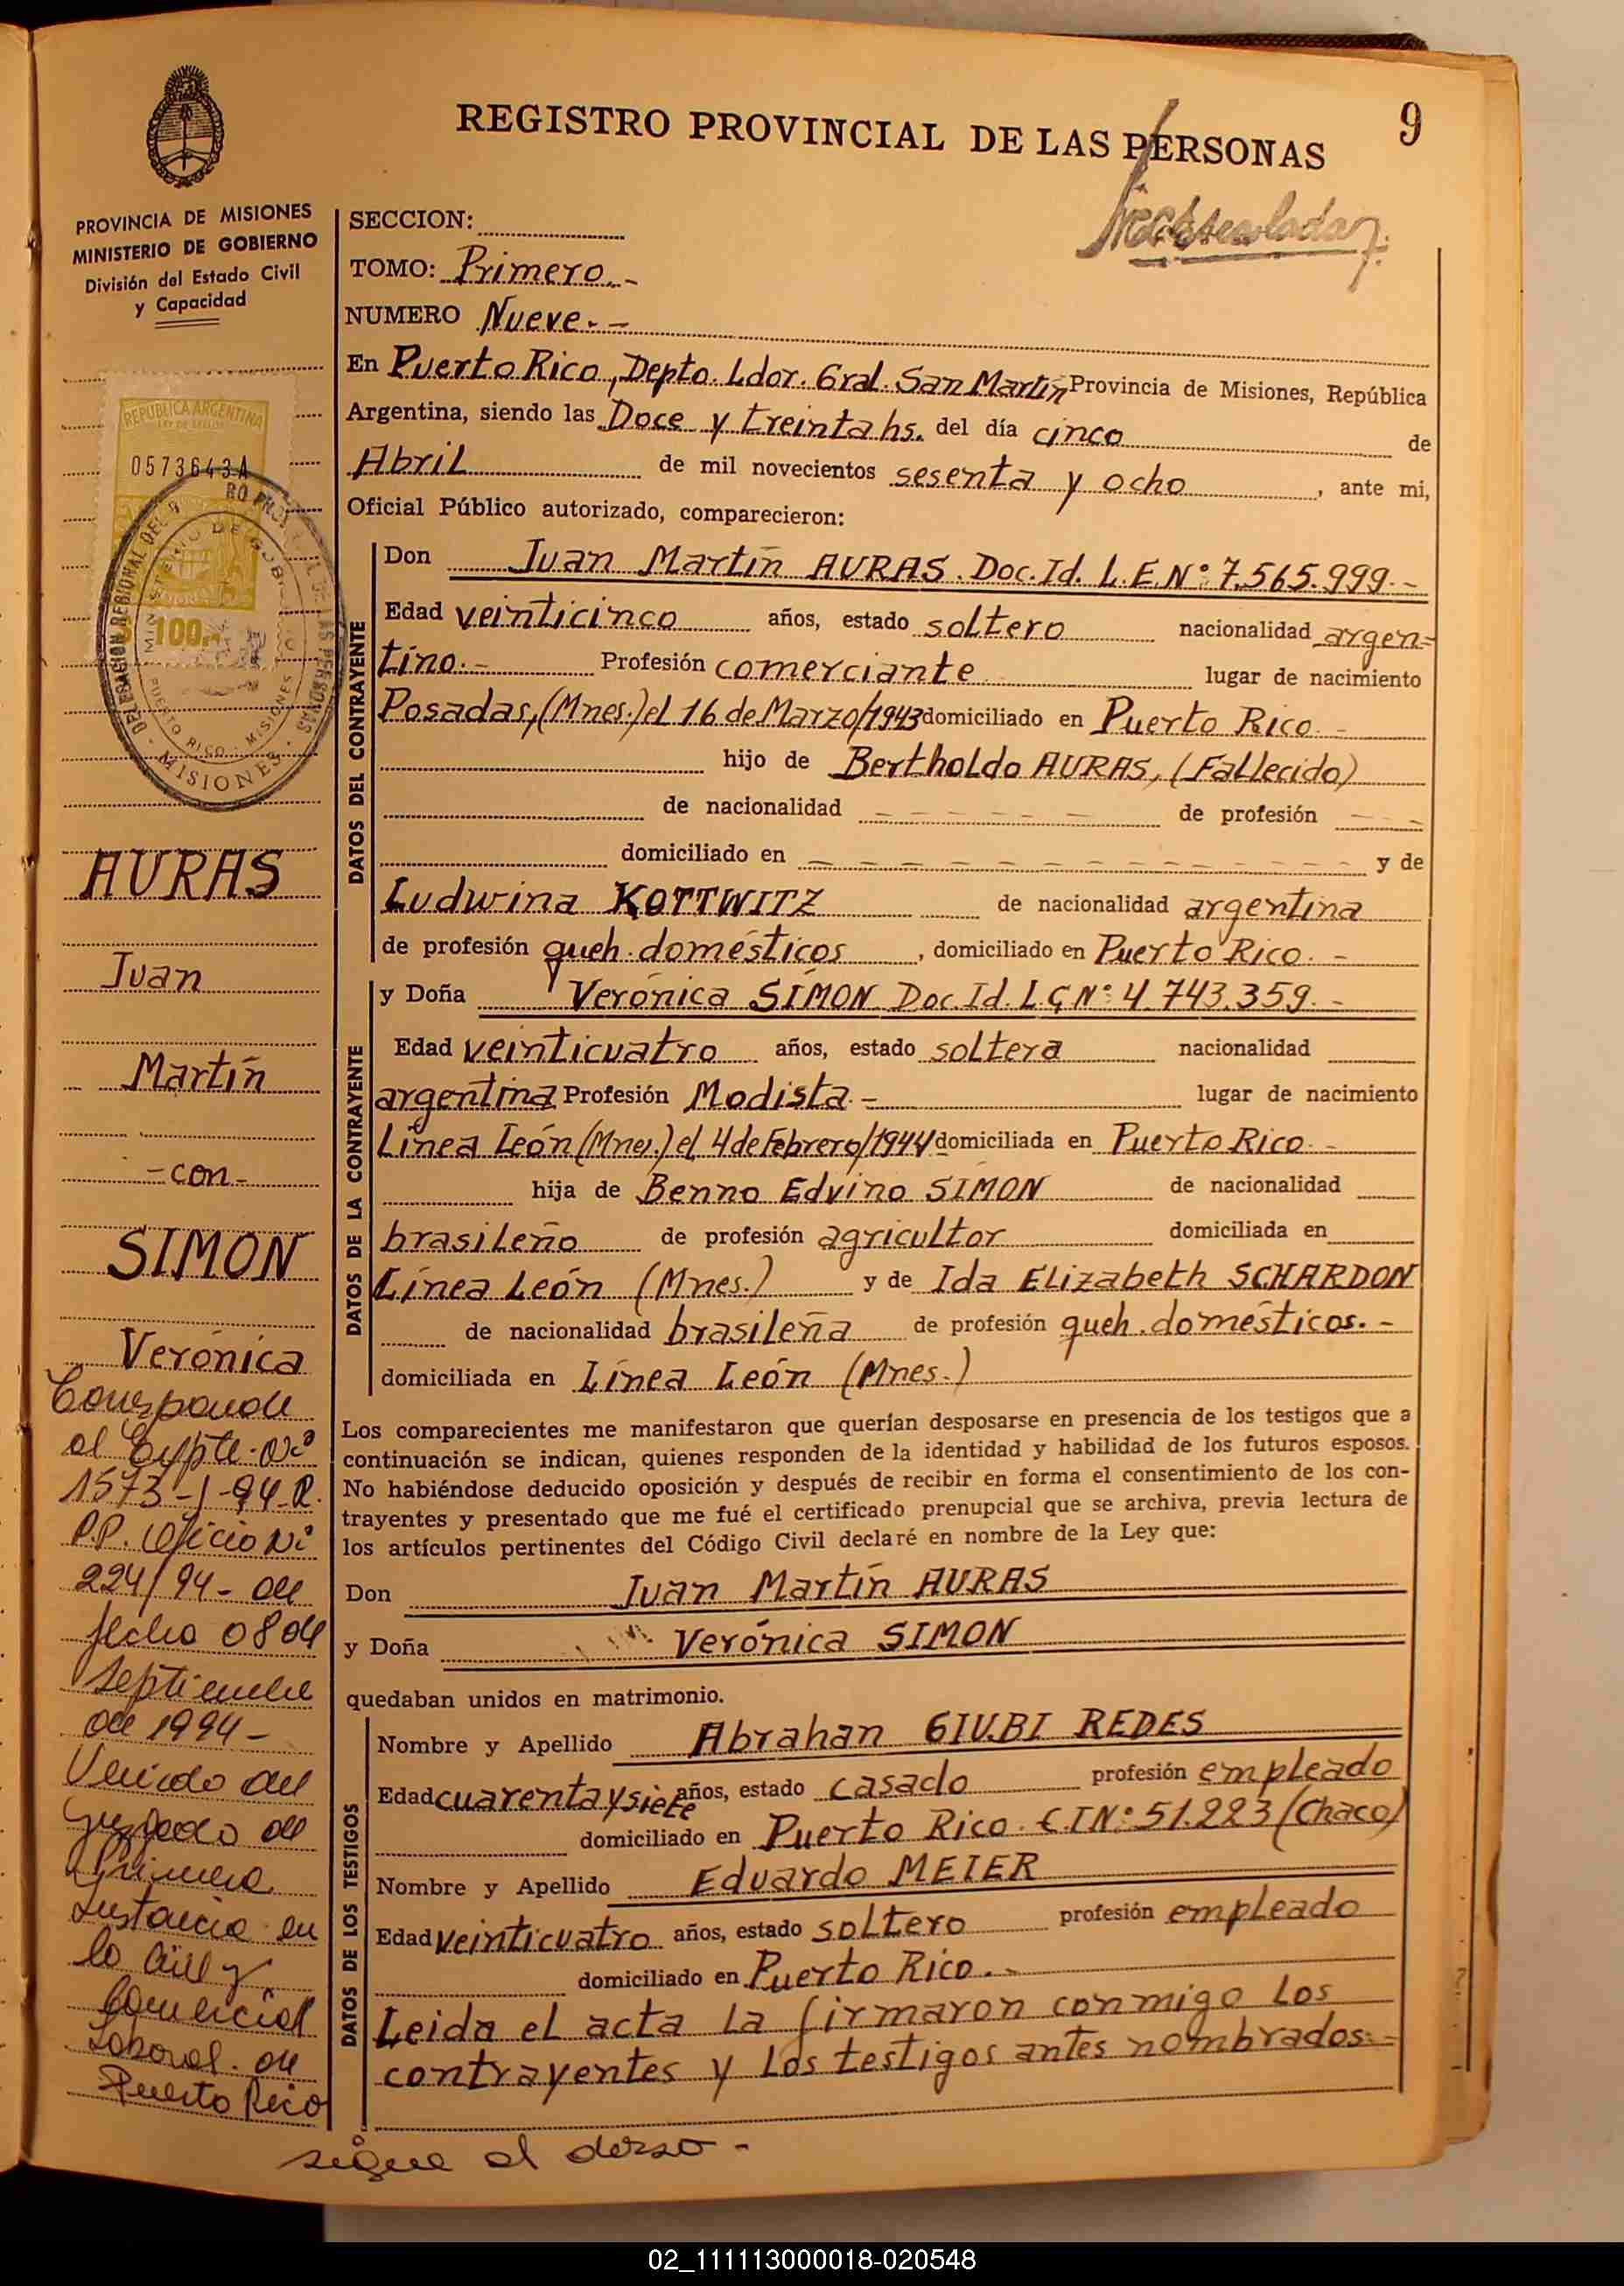 REGISTRO PROVINCIAL DE LAS PERSONAS
9
PROVINCIA DE MISIONES
MINISTERIO DE GOBIERNO
División del Estado Civil
y Capacidad
SECCION:
TOMO: Primero.-
NUMERO Nueve.-
En Puerto Rico, Depto. Ldor. Gral. San Martín Provincia de Misiones, República
Argentina, siendo las Doce y treinta hs. del día cinco de
Abril de mil novecientos sesenta y ocho, ante mi,
Oficial Público autorizado, comparecieron:
REPUBLICA ARGENTINA
LEY DE SELLOS
0573643A
100
DELEGACION REGIONAL DEL REGISTRO PROVINCIAL DE LAS PERSONAS
MINISTERIO DE GOBIERNO
PUERTO RICO - MISIONES
MISIONES
DATOS DEL CONTRAYENTE
Don Juan Martín AURAS. Doc. Id. L.E.N°: 7.565.999.-
Edad veinticinco años, estado soltero nacionalidad argen=
tino.- Profesión comerciante lugar de nacimiento
Posadas, (Mnes.) el 16 de Marzo/1943 domiciliado en Puerto Rico.-
hijo de Bertholdo AURAS, (Fallecido)
de nacionalidad - - - - - de profesión - - -
domiciliado en - - - - - - - - - - - - y de
Ludwina KOTTWITZ de nacionalidad argentina
de profesión queh. domésticos, domiciliado en Puerto Rico.-
DATOS DE LA CONTRAYENTE
y Doña Verónica SIMON Doc. Id. L.C N°: 4.743.359.-
Edad veinticuatro años, estado soltera nacionalidad
argentina Profesión Modista.- lugar de nacimiento
Línea León (Mnes.) el 4 de Febrero/1944 domiciliada en Puerto Rico.-
hija de Benno Edvino SIMON de nacionalidad
brasileño de profesión agricultor domiciliada en
Línea León (Mnes.) y de Ida Elizabeth SCHARDON
de nacionalidad brasileña de profesión queh. domésticos.-
domiciliada en Línea León (Mnes.)
Los comparecientes me manifestaron que querían desposarse en presencia de los testigos que a
continuación se indican, quienes responden de la identidad y habilidad de los futuros esposos.
No habiéndose deducido oposición y después de recibir en forma el consentimiento de los con-
trayentes y presentado que me fué el certificado prenupcial que se archiva, previa lectura de
los artículos pertinentes del Código Civil declaré en nombre de la Ley que:
Don Juan Martín AURAS
y Doña Verónica SIMON
quedaban unidos en matrimonio.
DATOS DE LOS TESTIGOS
Nombre y Apellido Abrahan GIUBI REDES
Edad cuarenta y siete años, estado casado profesión empleado
domiciliado en Puerto Rico. C.I N°: 51.223 (Chaco)
Nombre y Apellido Eduardo MEIER
Edad veinticuatro años, estado soltero profesión empleado
domiciliado en Puerto Rico.-
Leida el acta la firmaron conmigo los
contrayentes y los testigos antes nombrados.=
AURAS
Juan
Martín
-con-
SIMON
Verónica
Corresponde
al Expte. N°
1573-J-94-R.
P.P. Oficio N°
224/94- de
fecha 08 de
septiembre
de 1994-
Venido del
Juzgado de
Primera
Instancia en
lo Civil y
Comercial
Laboral. de
Puerto Rico
sigue al dorso-
02_111113000018-020548